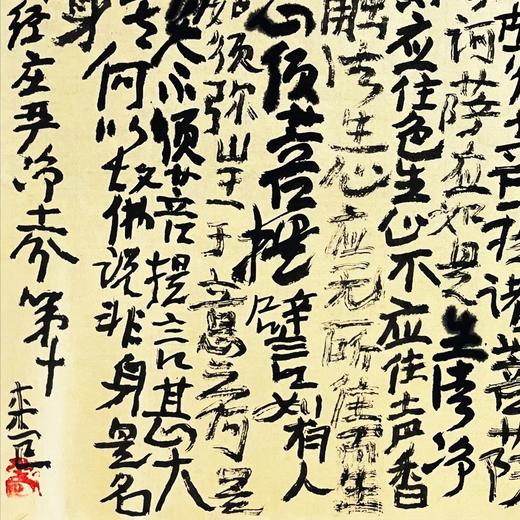 须菩提诸菩萨
诃萨应如是生清净
应住色生心不应住声香
触法生心应无所住而生
心须菩提譬如有人
如须弥山王于意云何是
为大不须菩提言甚大
尊何以故佛说非身是名
身
经庄严净土分第十